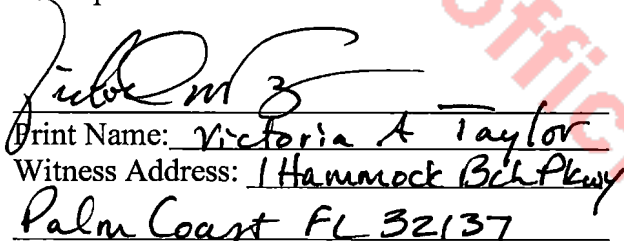 Offic
Print Name: Victoria A Taylor
Witness Address: 1 Hammock Bch Pkwy
Palm Coast FL 32137